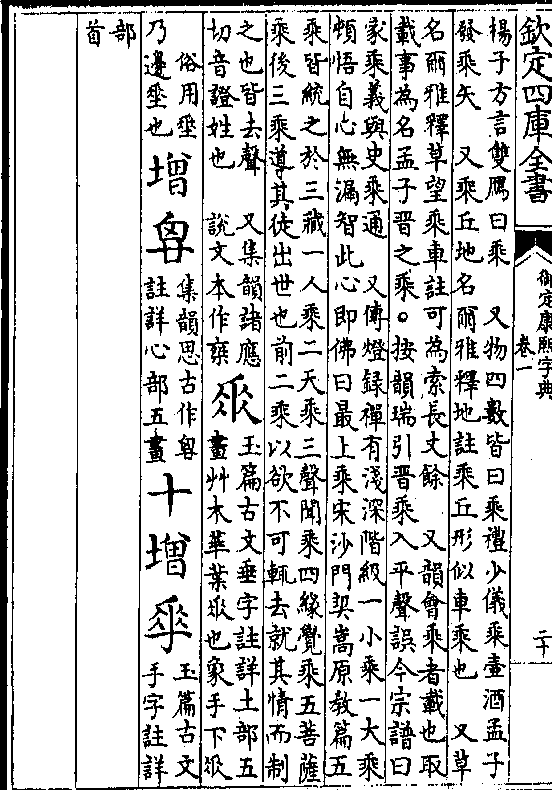 欽定四庫全書
御定康熙字典
卷一
二十
楊子方言雙鴈曰乘 又物四數皆曰乘禮少儀乘壷酒孟子
發乘矢 又乘丘地名爾雅釋地註乘丘形似車乘也 又草
名爾雅釋草望乘車註可為索長丈餘 又韻會乘者載也取
載事為名孟子晉之乘。按韻瑞引晉乘入平聲誤今宗譜曰
家乘義與史乘通 又傳燈録禪有淺深階級一小乘一大乘
頓悟自心無漏智此心即佛曰最上乘宋沙門契嵩原教篇五
乘皆統之於三藏一人乘二天乘三聲聞乘四緣覺乘五菩薩
乘後三乘導其徒出世也前二乘以欲不可輒去就其情而制
之也皆去聲 又集韻諸應
切音證姓也 說文本作椉
𠂹
玉篇古文垂字註詳土部五
畫艸木華葉𠂹也象手下𠂹
俗用埀
乃邊埀也
增
集韻思古作
註詳心部五畫
十增
玉篇古文
手字註詳
部
首